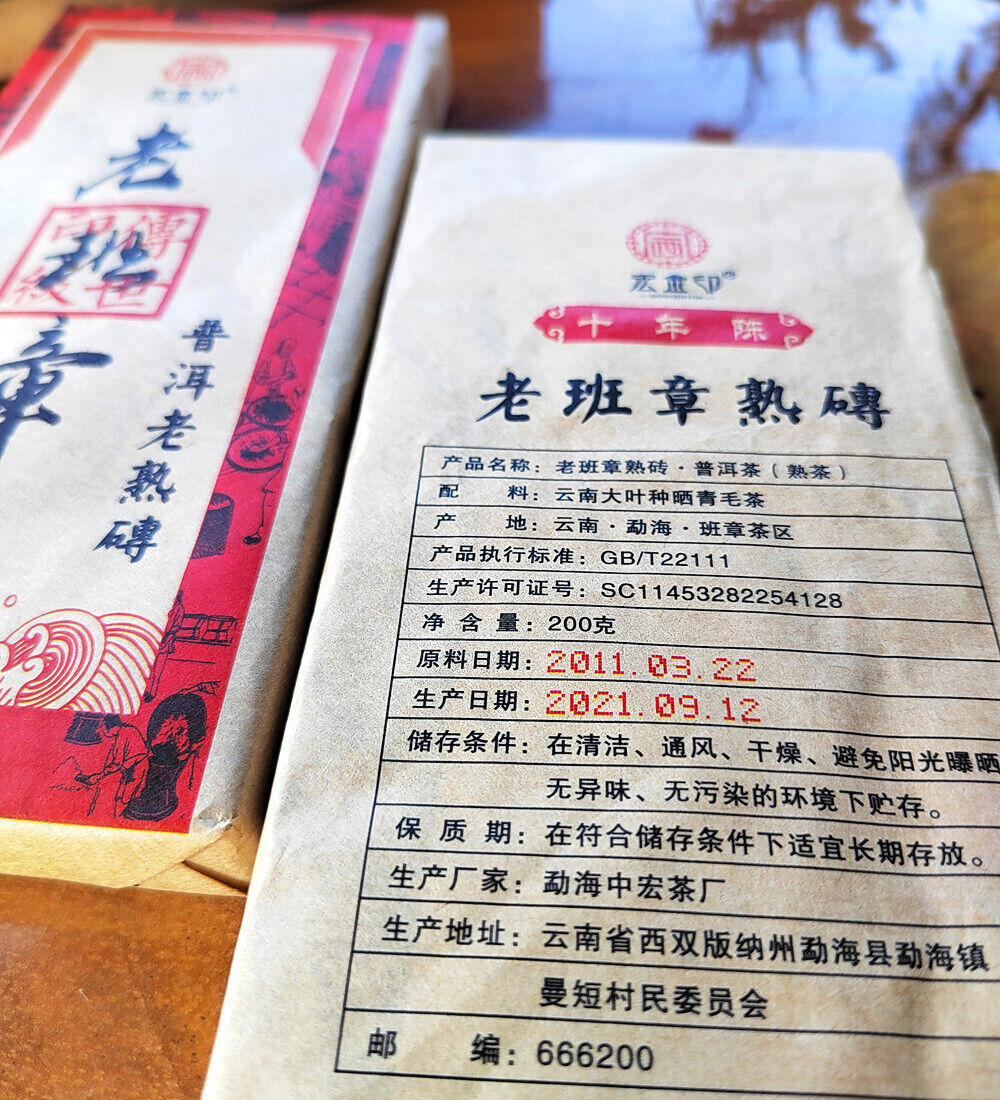 老班章
傳世
印級
普洱老熟磚
十年陈
老班章熟磚
产品名称：老班章熟砖·普洱茶（熟茶）
配料：云南大叶种晒青毛茶
产地：云南·勐海·班章茶区
产品执行标准：GB/T22111
生产许可证号：SC11453282254128
净含量：200克
原料日期：2011.03.22
生产日期：2021.09.12
储存条件：在清洁、通风、干燥、避免阳光曝晒
无异味、无污染的环境下贮存。
保质期：在符合储存条件下适宜长期存放。
生产厂家：勐海中宏茶厂
生产地址：云南省西双版纳州勐海县勐海镇
曼短村民委员会
邮编：666200